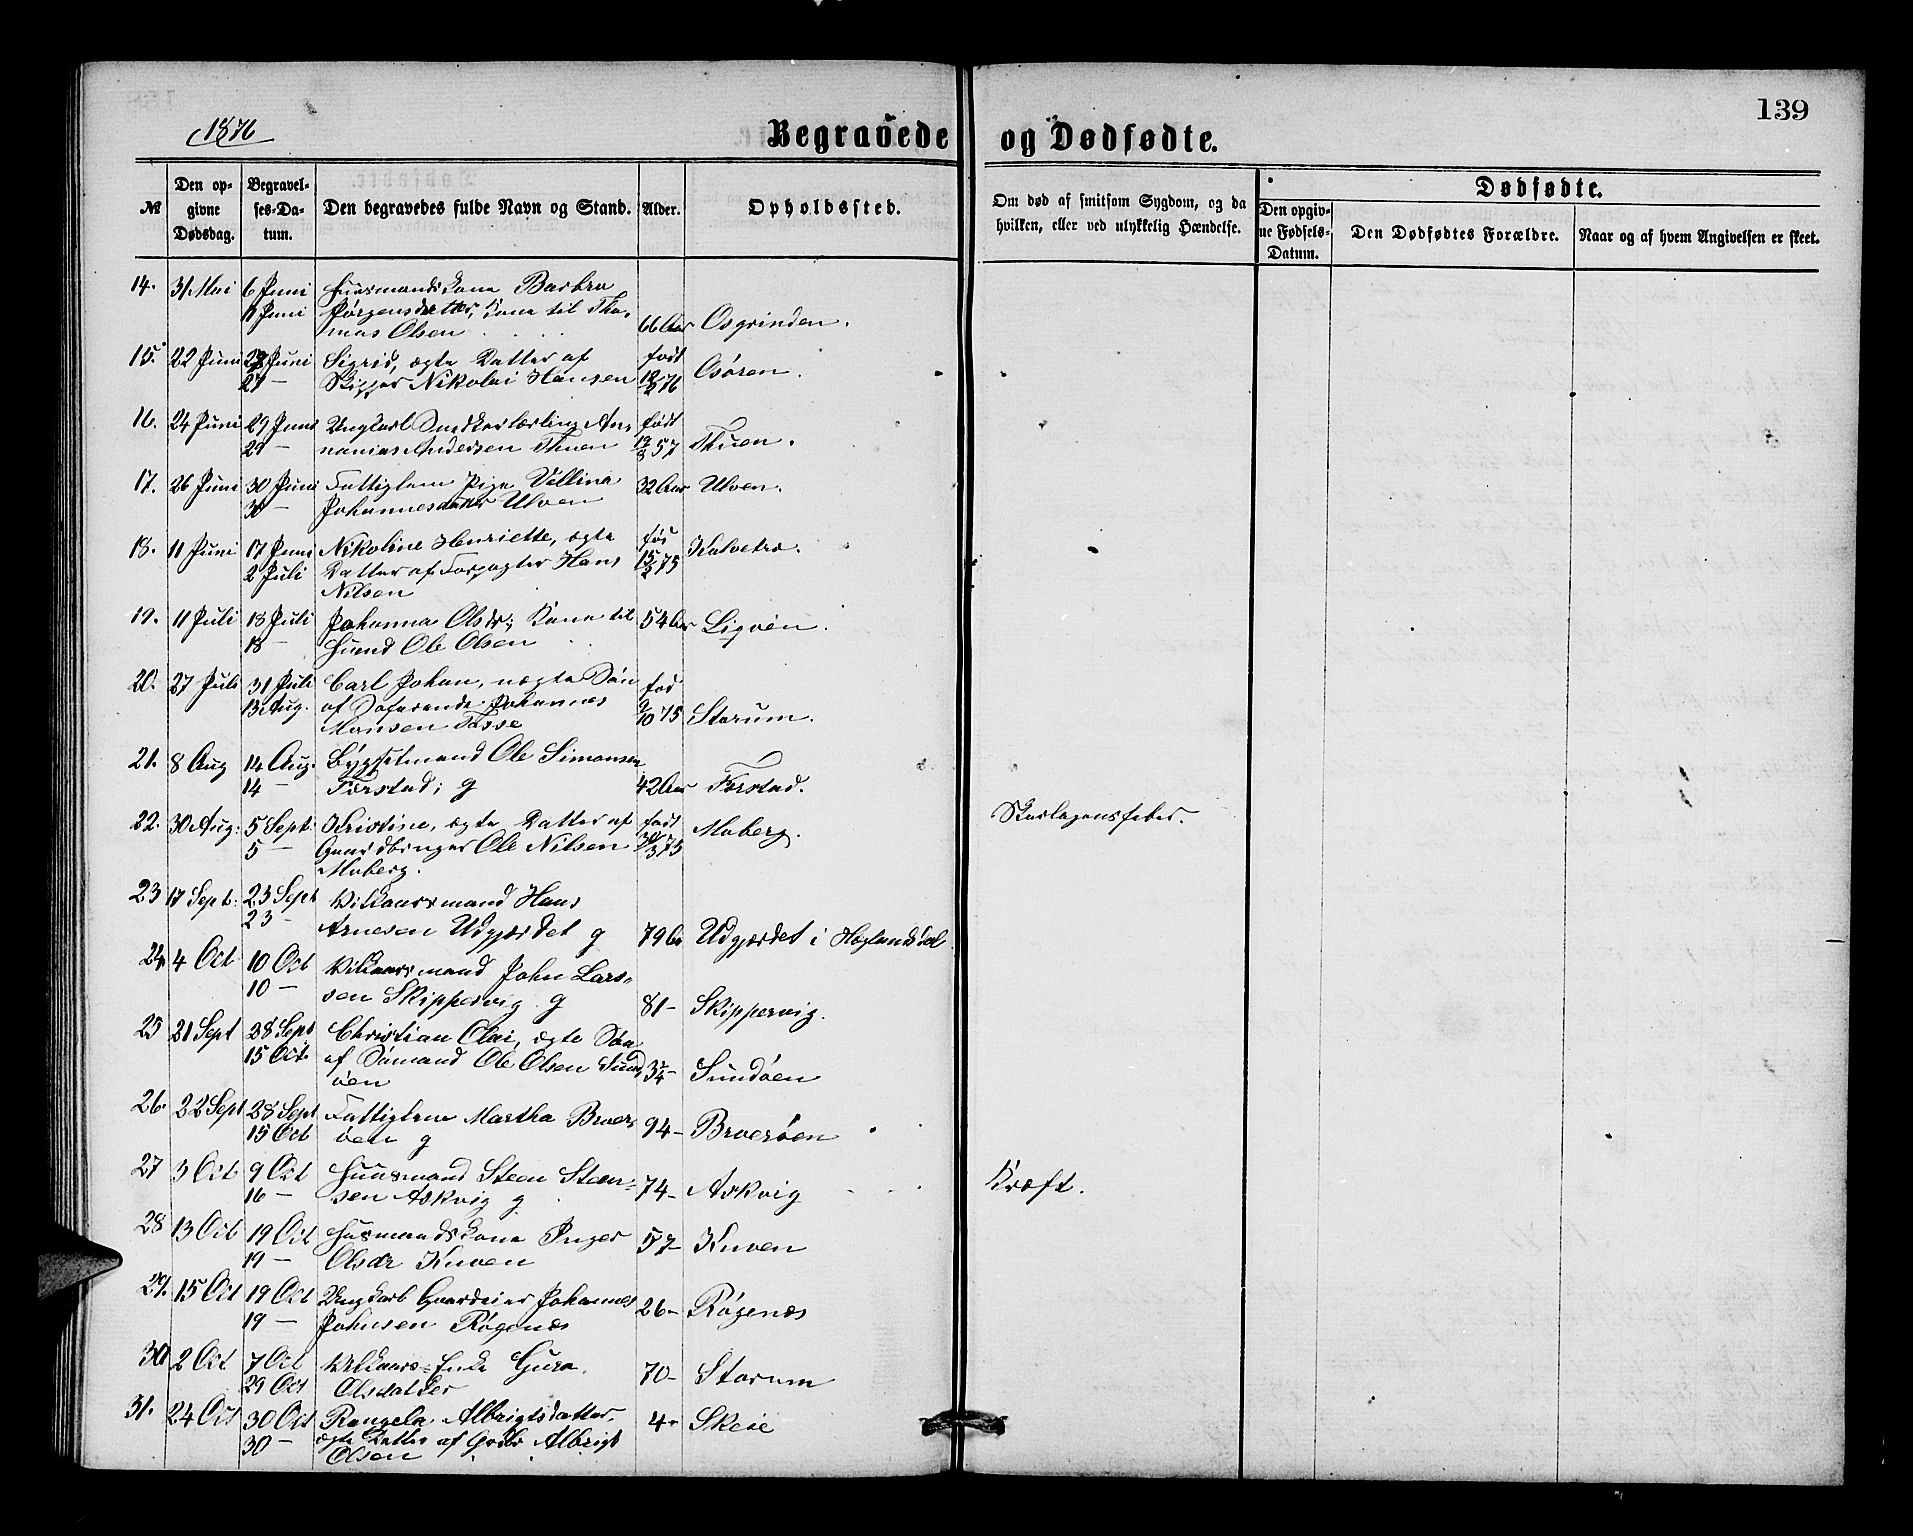 139
1876
Begravede og Dødfødte.
№
Den op-
givne
Dødsdag.
Begravel-
ses-Da-
tum.
Den begravedes fulde Navn og Stand.
Alder.
Opholdssted.
Om død af smitsom Sygdom, og da
hvilken, eller ved ulykkelig Hændelse.
Dødfødte.
Den opgiv-
ne Fødsels-
Datum.
Den Dødfødtes Forældre.
Naar og af hvem Angivelsen er skeet.
14. 31 Mai 6 Juni Huusmandskona Barbro
11 Juni Jørgensdatter, Kona til Tho-
mas Olsen 66 Aar Osgrinden.
15. 22 Juni Juni Sigrid, ægte Datter af født
27 — Skipper Nikolai Hansen 76 Osøren.
16. 24 Juni 29 Juni Ungkarl Snedkerlærling An- født
29 — nanias Andersen Thuen 57 Thuen.
17. 26 Juni 30 Juni Fattiglem Pige Vellina 32 Aar Ulven.
30 — Johannesdatter Ulven
18. 11 Juni 17 Juni Nikoline Henriette, ægte Kalvetræ.
2 Juli Datter af Forpagter Hans 75
Nilsen
19. 11 Juli 18 Juli Johanna Olsdr; Kona til 54 Aar Ligvên.
18 — Huusmd Ole Olsen
20. 27 Juli 31 Juli Carl Johan, uægte Søn fød
13 Aug. af Søfarende Johannes 9/10 75 Storum.
Monsen Tøsse
21. 8 Aug 14 Aug. Bygselmand Ole Simonsen
14 — Færstad; g 42 Aar Færstad.
22. 30 Aug. 5 Sept. Kristine, ægte Datter af født Moberg. Skarlagensfeber.
5 — Gaardbruger Ole Nilsen 75
Moberg.
23 17 Sept. 23 Sept Vilkaarsmand Hans
23 — Arnesen Udgjærdet g 79 Udgjærdet i Hæglandsdal.
24. 4 Oct 10 Oct Vilkaarsmand John Lars-
10 — sen Skippervig g 81 — Skippervig.
25 21 Sept 28 Sept Christian Olai, ægte Søn
15 Oct. af Sømand Ole Olsen Sund- 3/4 — Sundøen
øen
26. 22 Sept 28 Sept Fattiglem Martha Broer-
15 Oct øen g 94 — Broerøen
27 3 Oct 9 Oct Huusmand Steen Steen-
16 — sen Askvig g 74 — Askvig Kræft.
28 13 Oct 19 Oct Husmandskona Inger
19 — Olsdr Kuven 57 — Kuven
29. 15 Oct 19 Oct Ungkarl Gvardeier Johannes
19 — Johnsen Røgenæs 26 — Røgenæs
30 2 Oct 7 Oct Vilkaars-Enke Guro
29 Oct Olsdatter 70 — Storum
31. 24 Oct 30 Oct Rangela Albrigtsdatter, 4 Skeie
30 — ægte Datter af Gvdbr Albrigt
Olsen